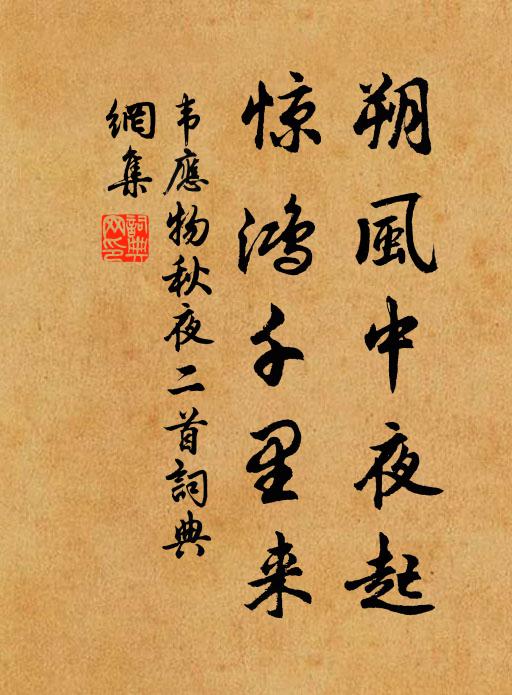 朔風中夜起
惊鸿千里来
韦應物秋夜二首詞典
網集
詞典
网印